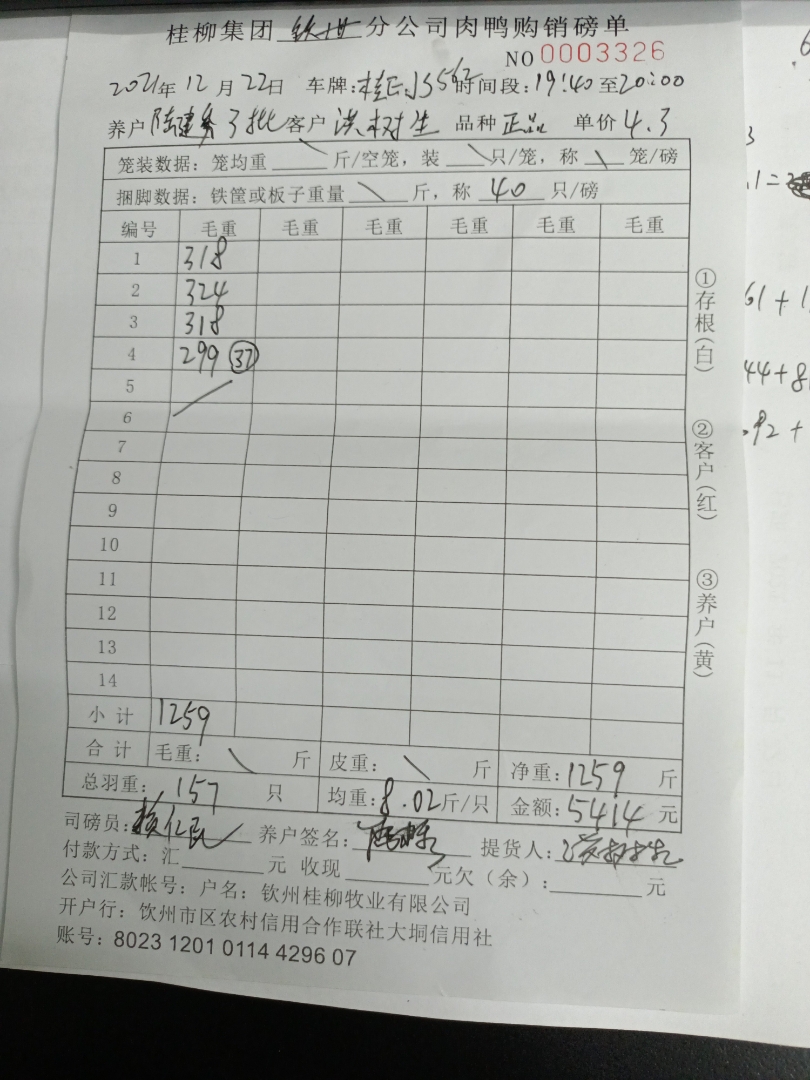 桂柳集团 钦州 分公司肉鸭购销磅单
NO 0003326
2021年12月22日 车牌: 时间段:19:40至20:00
养户 陆建 3批 客户 洪树生 品种 正品 单价 4.3
笼装数据: 笼均重 \ 斤/空笼, 装 \ 只/笼, 称 \ 笼/磅
捆脚数据: 铁筐或板子重量 \ 斤, 称 40 只/磅
编号 毛重 毛重 毛重 毛重 毛重 毛重
1 318
2 324
3 318
4 299 (37)
5
6
7
8
9
10
11
12
13
14
小计 1259
合计 毛重: \ 斤 皮重: \ 斤 净重: 1259 斤
总羽重: 157 只 均重: 8.02斤/只 金额: 5414 元
司磅员: 养户签名: 提货人:
付款方式: 汇 元 收现 元欠(余): 元
公司汇款帐号: 户名: 钦州桂柳牧业有限公司
开户行: 钦州市区农村信用合作联社大垌信用社
账号: 8023 1201 0114 4296 07
①存根(白)
②客户(红)
③养户(黄)
61 + 1
44 + 8
.92 +